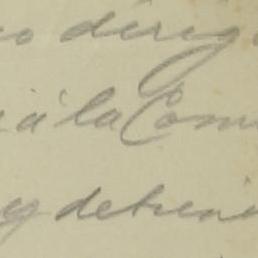 dirig
á la Com
y detrene